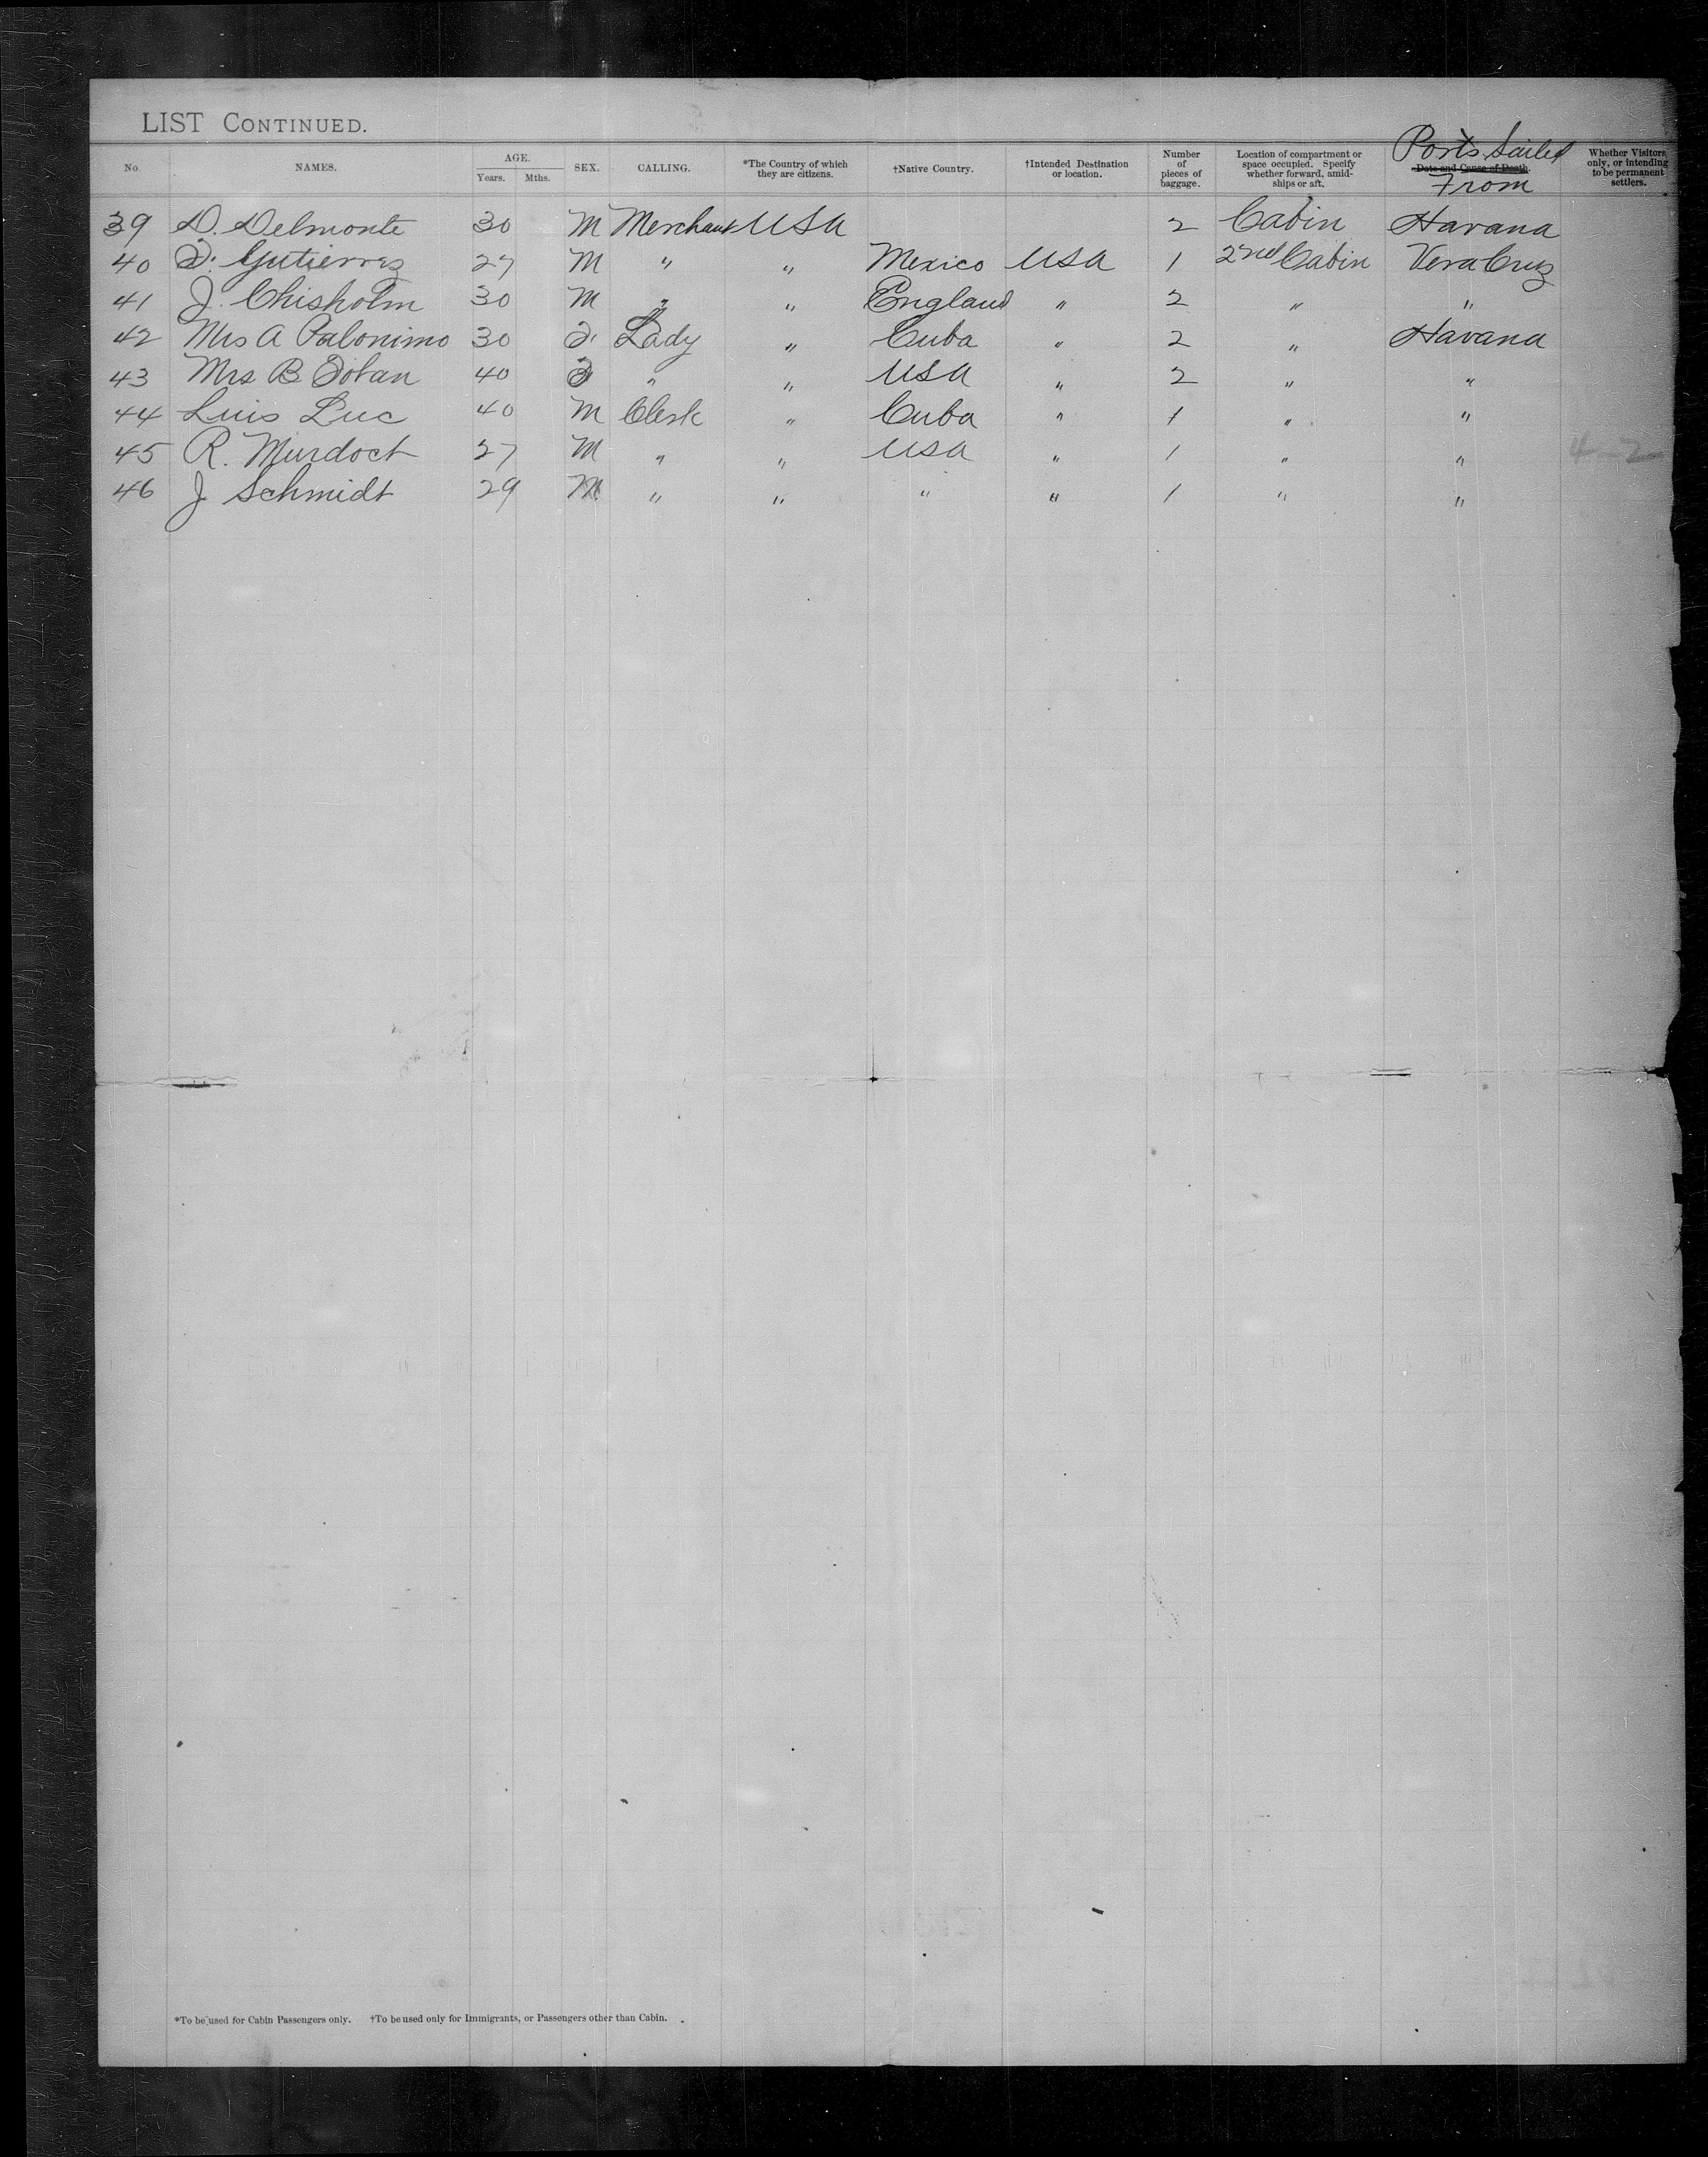 LIST CONTINUED.
No. NAMES. AGE. Years. Mths. SEX. CALLING. *The Country of which they are citizens. †Native Country. †Intended Destination or location. Number of pieces of baggage. Location of compartment or space occupied. Specify whether forward, amidships or aft. Date and Cause of Death. Ports Sailed From Whether Visitors only, or intending to be permanent settlers.
39 D. Delmonte 30 M Merchant USA 2 Cabin Havana
40 F. Gutierrez 27 M " " Mexico USA 1 2nd Cabin Vera Cruz
41 J. Chisholm 30 M " " England " 2 " "
42 Mrs A Palonimo 30 F. Lady " Cuba " 2 " Havana
43 Mrs B. 40 F " " USA " 2 " "
44 Luis Luc 40 M Clerk " Cuba " 1 " "
45 R. Murdoct 27 M " " USA " 1 " " 4-2
46 J Schmidt 29 M " " " " 1 " "
*To be used for Cabin Passengers only. †To be used only for Immigrants, or Passengers other than Cabin.